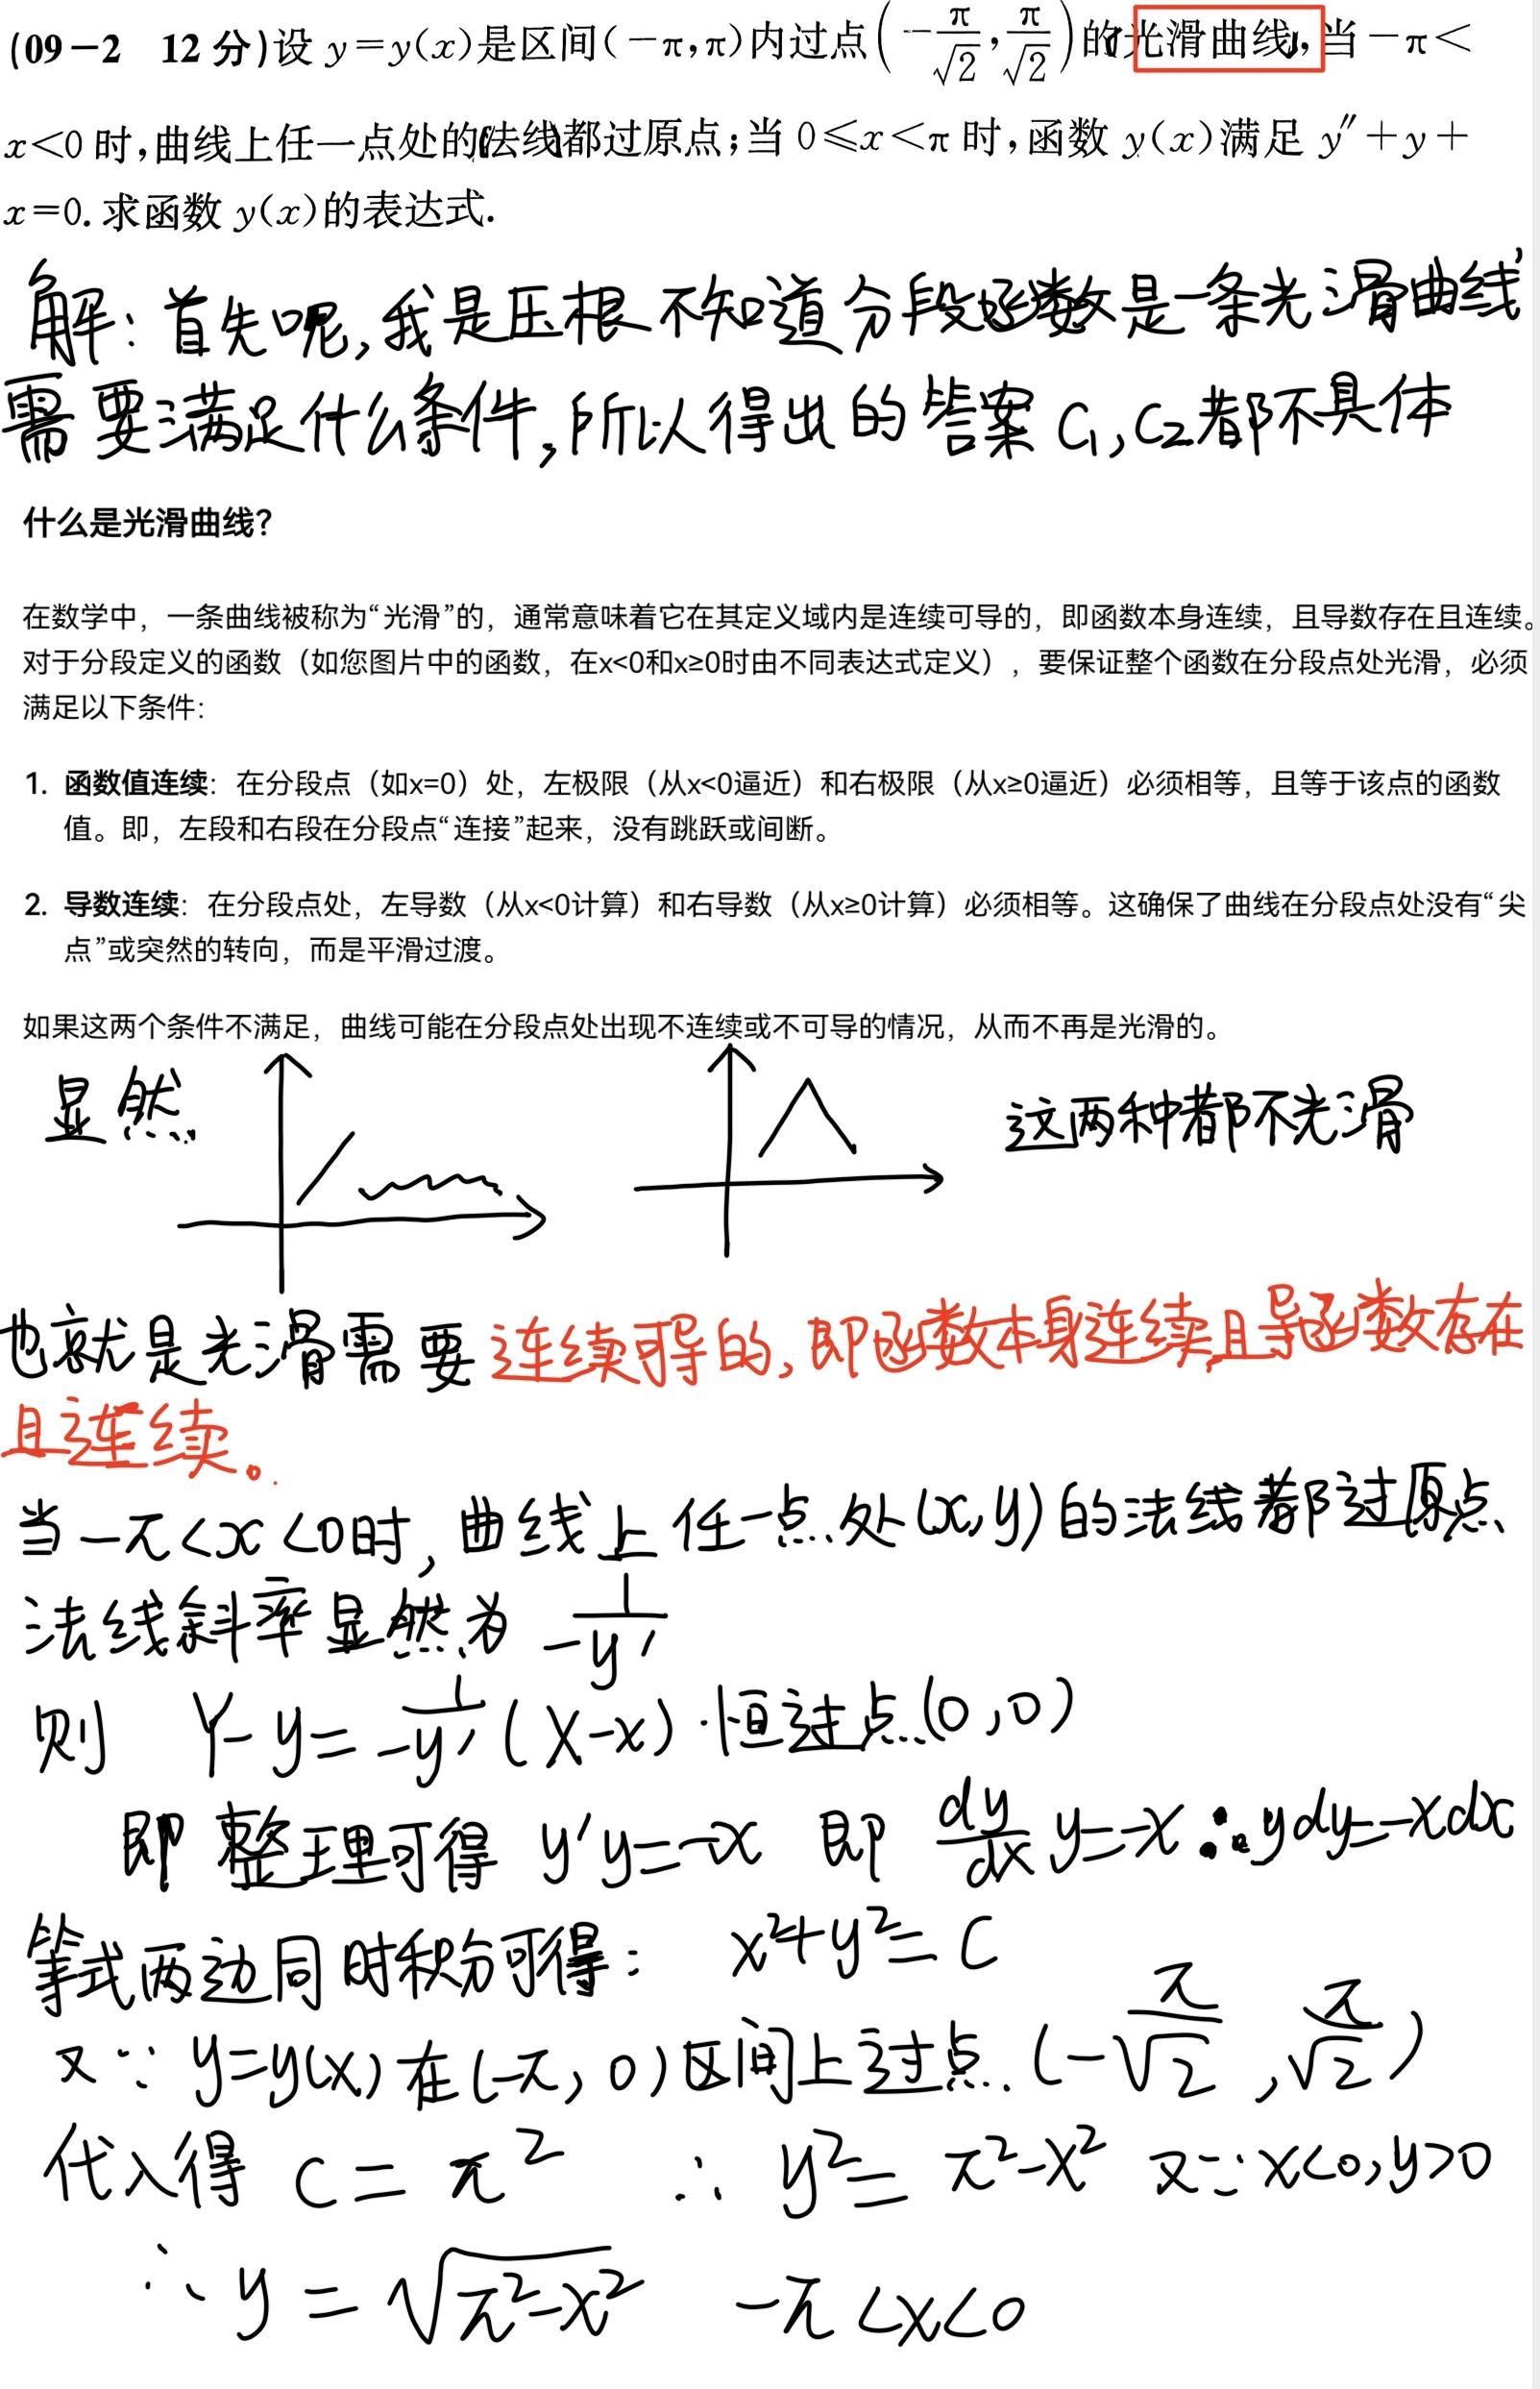 (09-2 12分)设 y=y(x)是区间(-π,π)内过点(-π/√2,π/√2)的光滑曲线,当-π<
x<0时,曲线上任一点处的法线都过原点;当 0≤x<π 时,函数 y(x)满足 y″+y+
x=0.求函数 y(x)的表达式.
解:首先呢,我是压根不知道分段函数是一条光滑曲线
需要满足什么条件,所以得出的答案C₁,C₂都不具体
什么是光滑曲线?
在数学中,一条曲线被称为“光滑”的,通常意味着它在其定义域内是连续可导的,即函数本身连续,且导数存在且连续。
对于分段定义的函数(如您图片中的函数,在x<0和x≥0时由不同表达式定义),要保证整个函数在分段点处光滑,必须
满足以下条件:
1. 函数值连续:在分段点(如x=0)处,左极限(从x<0逼近)和右极限(从x≥0逼近)必须相等,且等于该点的函数
值。即,左段和右段在分段点“连接”起来,没有跳跃或间断。
2. 导数连续:在分段点处,左导数(从x<0计算)和右导数(从x≥0计算)必须相等。这确保了曲线在分段点处没有“尖
点”或突然的转向,而是平滑过渡。
如果这两个条件不满足,曲线可能在分段点处出现不连续或不可导的情况,从而不再是光滑的。
显然 这两种都不光滑
也就是光滑需要连续可导的,即函数本身连续,且导函数存在
且连续。
当-π<x<0时,曲线上任一点处(x,y)的法线都过原点
法线斜率显然为 1/-y′
则 Y-y=1/-y′(X-x)恒过点(0,0)
即整理可得 y′y=-x 即 dy/dx y=-x ∴ydy=-xdx
等式两边同时积分可得: x²+y²=C
又∵y=y(x)在(-π,0)区间上过点(-π/√2,π/√2)
代入得 C=π² ∴ y²=π²-x² 又∵x<0,y>0
∴y=√(π²-x²) -π<x<0